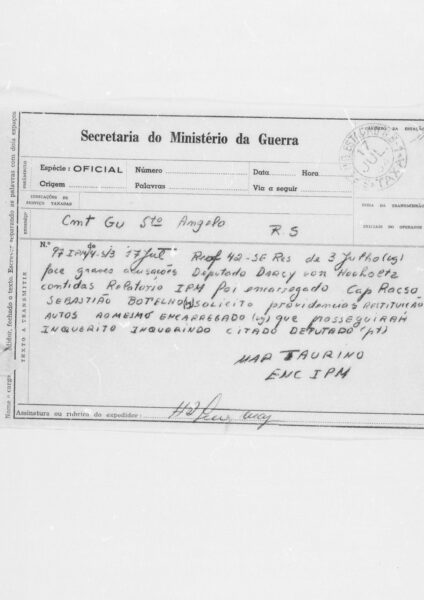 Secretaria do Ministério da Guerra
CARIMBO DA ESTAÇÃO
17 JUL
PREÂMBULO
Espécie: OFICIAL Número Data Hora
Origem Palavras Via a seguir
INDICAÇÕES DE SERVIÇO TAXADAS
HORA DA TRANSMISSÃO
INICIAIS DO OPERADOR
Cmt Gu Sto Angelo R.S
N.º 97 S/3 17 Jul Ref 42-SE Res de 3 Julho (vg)
face graves acusações Deputado Darcy von
contidas Relatorio IPM foi encarregado Cap
SEBASTIÃO BOTELHO (vg) SOLICITO providencias RESTITUIÇÃO
AUTOS AO MESMO ENCARREGADO (vg) que PROSSEGUIRAM
INQUERITO INQUERINDO CITADO DEPUTADO (pt)
MAR TAURINO
ENC IPM
TEXTO A TRANSMITIR
Escrever separando as palavras com dois espaços
Assinatura ou rubrica do expedidor: